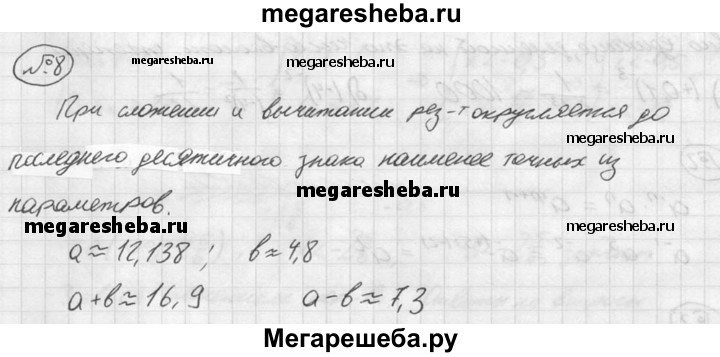 megaresheba.ru
№8
megaresheba.ru
megaresheba.ru
При сложении и вычитании рез-т округляется до
megaresheba.ru
последнего десятичного знака наименее точных из
megaresheba.ru
megaresheba.ru
параметров.
megaresheba.ru
megaresheba.ru
a ≈ 12,138 ; b ≈ 4,8
a + b ≈ 16,9 a - b ≈ 7,3
Мегарешеба.ру